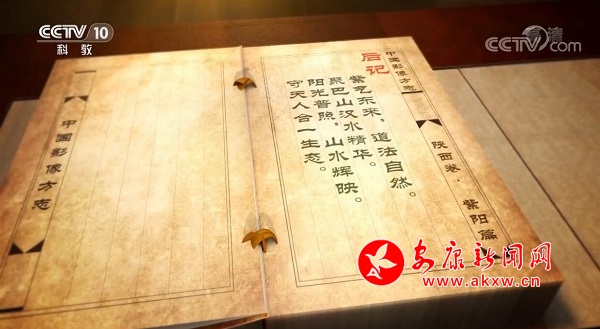 CCTV 10
科教
CCTV.com
中国影像方志
后记
紫气东来，道法自然。
聚巴山汉水精华。
阳光普照，山水辉映。
守天人合一生态。
中国影像方志
陕西卷·紫阳篇
安康新闻网
www.akxw.cn